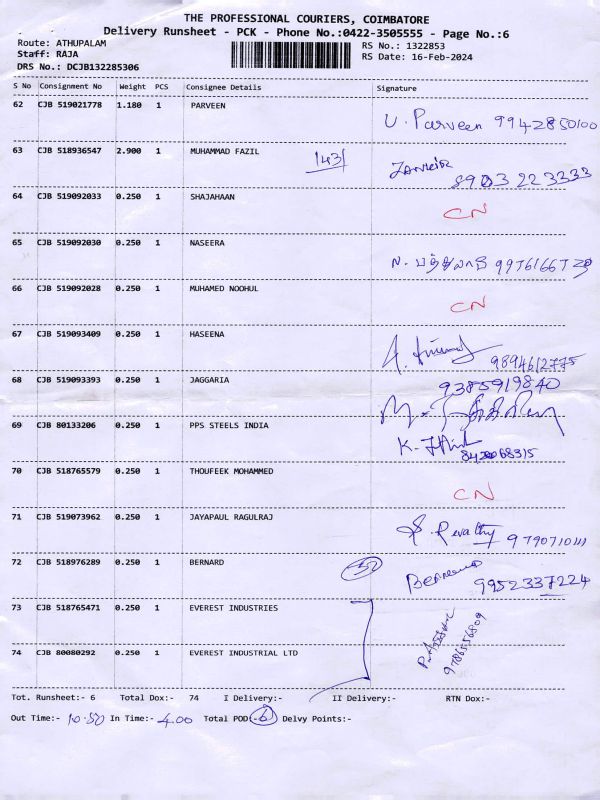 THE PROFESSIONAL COURIERS, COIMBATORE
Delivery Runsheet - PCK - Phone No.:0422-3505555 - Page No.:6
Route: ATHUPALAM RS No.: 1322853
Staff: RAJA RS Date: 16-Feb-2024
DRS No.: DCJB132285306
S No Consignment No Weight PCS Consignee Details Signature
62 CJB 519021778 1.180 1 PARVEEN U. Parveen 9942850100
63 CJB 518936547 2.900 1 MUHAMMAD FAZIL 143/
8903 223333
64 CJB 519092033 0.250 1 SHAJAHAAN CN
65 CJB 519092030 0.250 1 NASEERA
66 CJB 519092028 0.250 1 MUHAMED NOOHUL CN
67 CJB 519093409 0.250 1 HASEENA
9894612775
68 CJB 519093393 0.250 1 JAGGARIA 9385919840
69 CJB 80133206 0.250 1 PPS STEELS INDIA
70 CJB 518765579 0.250 1 THOUFEEK MOHAMMED CN
71 CJB 519073962 0.250 1 JAYAPAUL RAGULRAJ S. Revathy
72 CJB 518976289 0.250 1 BERNARD 9952337224
73 CJB 518765471 0.250 1 EVEREST INDUSTRIES
74 CJB 80080292 0.250 1 EVEREST INDUSTRIAL LTD 9786556809
Tot. Runsheet:- 6 Total Dox:- 74 I Delivery:- II Delivery:- RTN Dox:-
Out Time:- 10.50 In Time:- 4.00 Total POD:- 6 Delvy Points:-